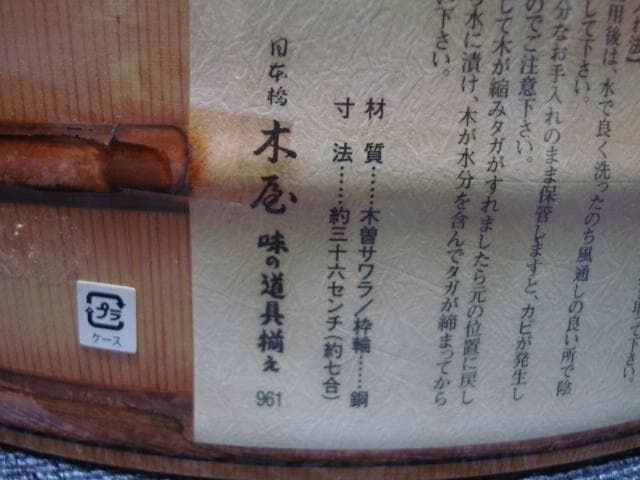 用後は、水で良く洗ったのち風通しの良い所で陰
して下さい。
分なお手入れのまま保管しますと、カビが発生し
のでご注意下さい。
して木が縮みタガがずれましたら元の位置に戻し
ら水に漬け、木が水分を含んでタガが締まってから
下さい。
材質……木曽サワラ／枠輪……銅
寸法……約三十六センチ（約七合）
日本橋 木屋 味の道具揃え 961
プラ
ケース